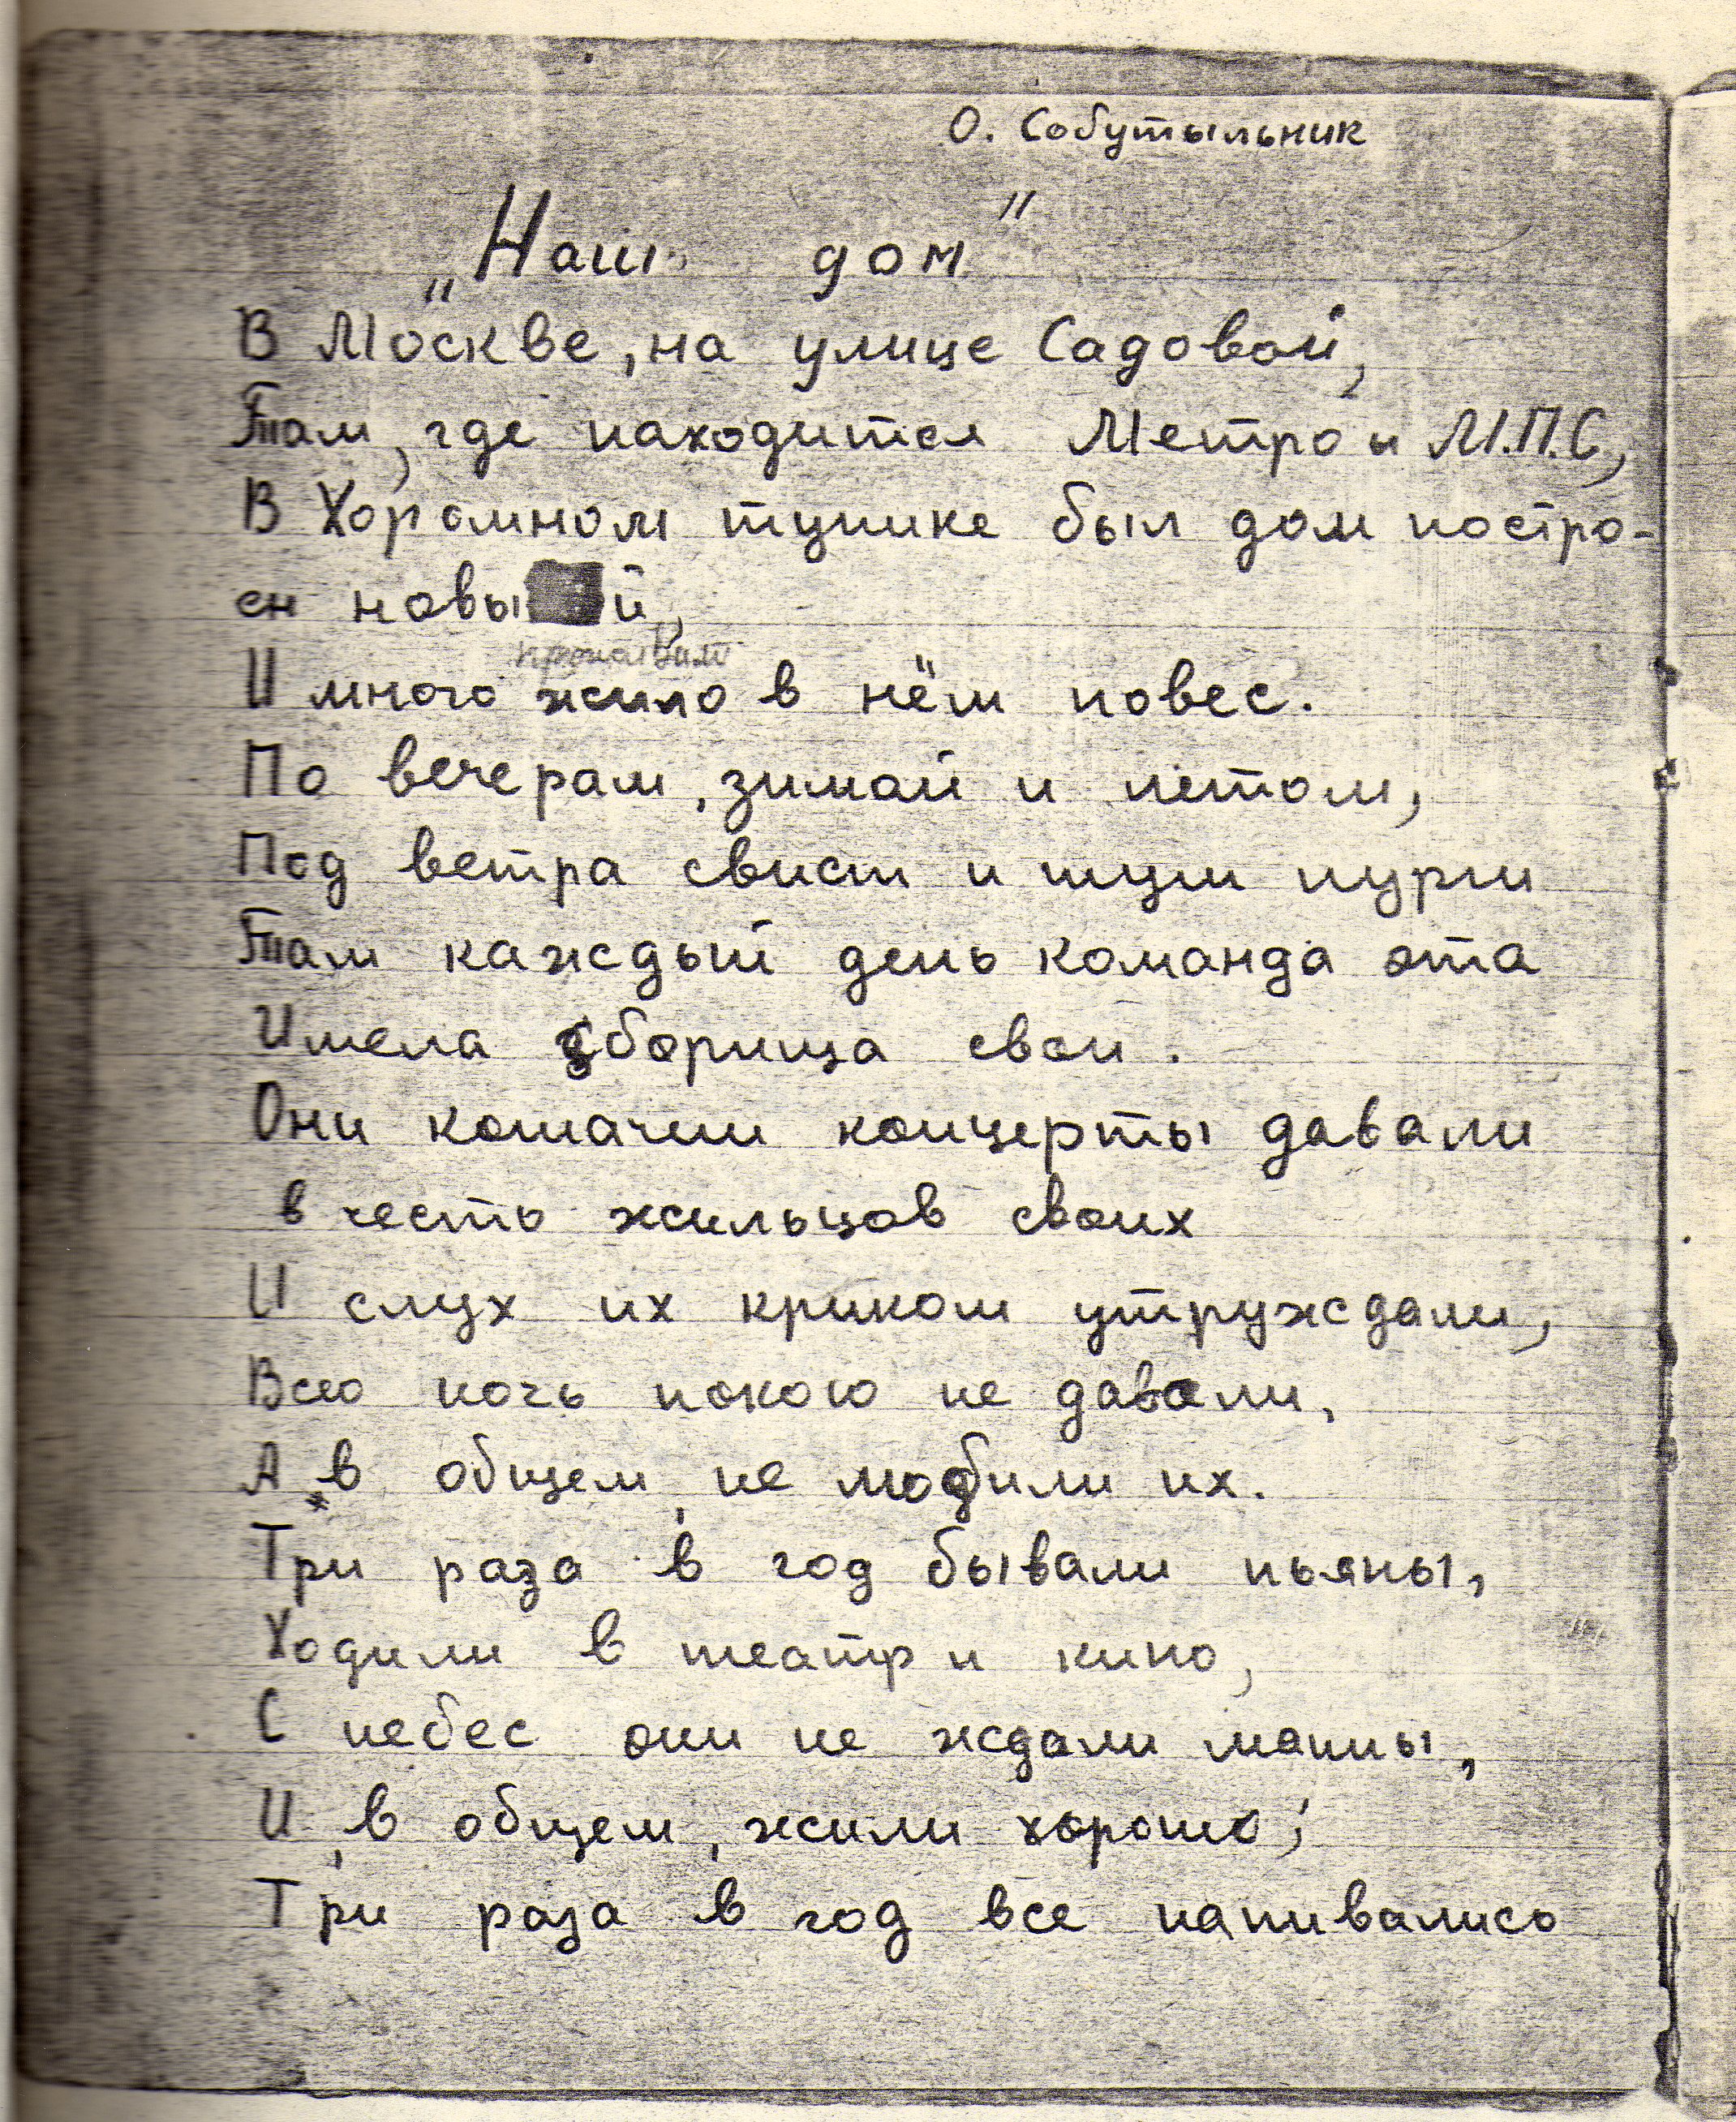 О. Собутыльник
„Наш дом"
В Москве, на улице Садовой,
Там, где находится Метро и М.П.С,
В Хоромном тупике был дом постро-
ен новый,
И много жило в нём повес.
По вечерам, зимой и летом,
Под ветра свист и шум пурги
Там каждый день команда эта
Имела сборища свои.
Они кошачьи концерты давали
в честь жильцов своих
И слух их криком утруждали,
Всю ночь покою не давали,
А в общем, не любили их.
Три раза в год бывали пьяны,
Ходили в театр и кино,
С небес они не ждали манны,
И, в общем, жили хорошо;
Три раза в год все напивались